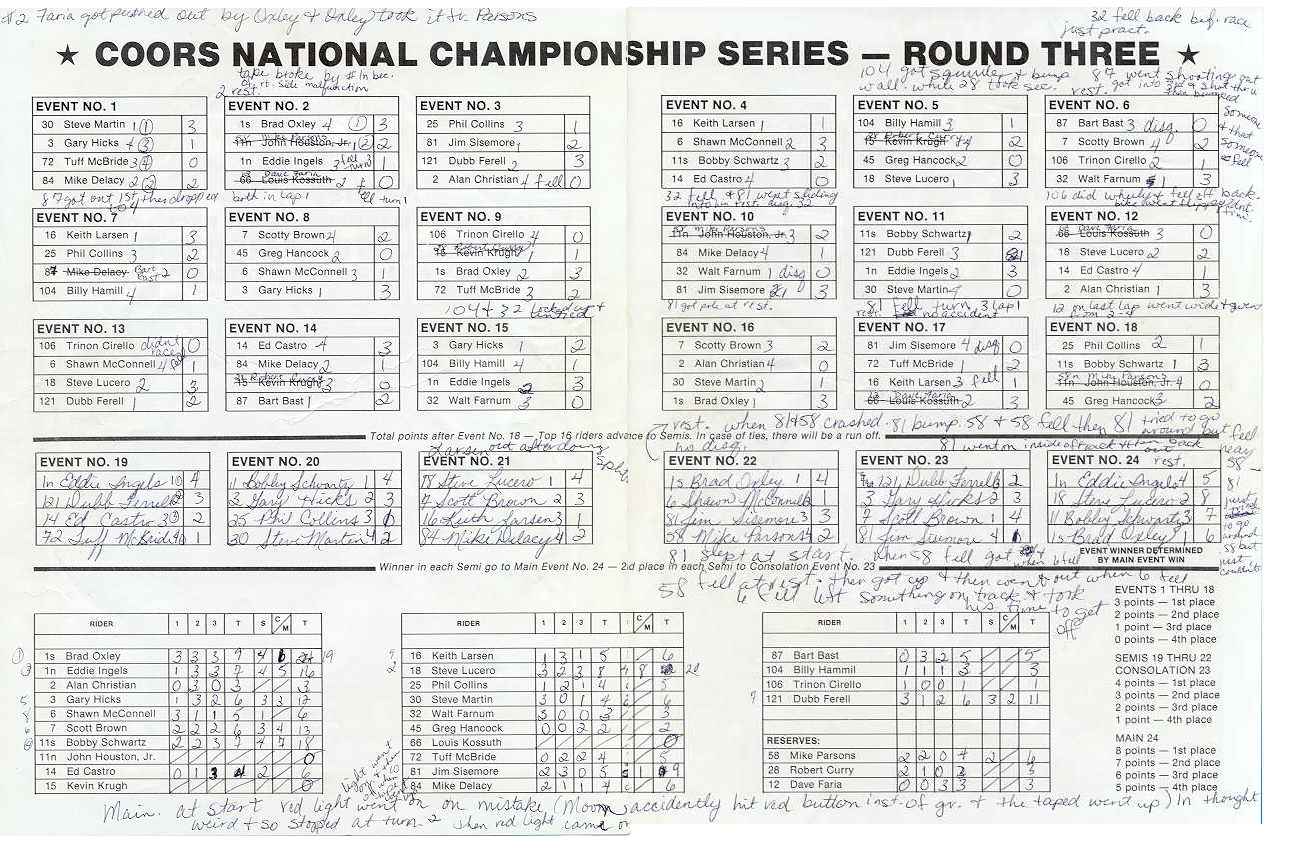 #2 Faria got pushed out by Oxley & Oxley took it fr. Parsons
32 fell back bef. race
just pract.
★ COORS NATIONAL CHAMPIONSHIP SERIES — ROUND THREE ★
tape broke by # 1n bec.
of rt. side malfunction
2 rest.
104 got squirrely & bump
wall. while 28 took sec.
87 went shooting out
rest.
EVENT NO. 1
30 Steve Martin 1 1 3
3 Gary Hicks 4 3 1
72 Tuff McBride 3 4 0
84 Mike Delacy 2 2 2
EVENT NO. 2
1s Brad Oxley 4 1 3
58 Mike Parsons
11n John Houston, Jr. 1 2 2
1n Eddie Ingels 3 fell turn 1 1
12 Dave Faria
66 Louis Kossuth 2 0
EVENT NO. 3
25 Phil Collins 3 1
81 Jim Sisemore 1 2
121 Dubb Ferell 2 3
2 Alan Christian 4 fell 0
fell turn 1
EVENT NO. 4
16 Keith Larsen 1 1
6 Shawn McConnell 2 3
11s Bobby Schwartz 3 2
14 Ed Castro 4 0
EVENT NO. 5
104 Billy Hamill 3 1
28 Robert Curry
15 Kevin Krugh 4 2
45 Greg Hancock 2 0
18 Steve Lucero 1 3
EVENT NO. 6
87 Bart Bast 3 disq. 0
7 Scotty Brown 4 2
106 Tinon Cirello 2 1
32 Walt Farnum 1 3
87 got out 1st, then dropped
to 4
both in lap 1
32 fell & 81 went sliding
into him rest. disq. 32
106 did wheely & fell off back.
EVENT NO. 7
16 Keith Larsen 1 3
25 Phil Collins 3 2
87 Mike Delacy Bart Bast 2 0
104 Billy Hamill 4 1
EVENT NO. 8
7 Scotty Brown 4 2
45 Greg Hancock 2 0
6 Shawn McConnell 3 1
3 Gary Hicks 1 3
EVENT NO. 9
106 Trinon Cirello 4 0
28 Robert Curry
15 Kevin Krugh 1 1
1s Brad Oxley 2 3
72 Tuff McBride 3 2
EVENT NO. 10
58 Mike Parsons
11n John Houston, Jr. 3 2
84 Mike Delacy 4 1
32 Walt Farnum 1 disq 0
81 Jim Sisemore 2 3
EVENT NO. 11
11s Bobby Schwartz 1 2
121 Dubb Ferell 3 1
1n Eddie Ingels 2 3
30 Steve Martin 4 0
EVENT NO. 12
12 Dave Faria
66 Louis Kossuth 3 0
18 Steve Lucero 2 2
14 Ed Castro 4 1
2 Alan Christian 1 3
104 & 32 locked out &
81 got pole at rest.
81 fell turn 3 lap 1
rest. no accident
12 on last lap went wide & went
from 2-4
EVENT NO. 13
106 Trinon Cirello didn't race 0
6 Shawn McConnell 4 1
18 Steve Lucero 2 3
121 Dubb Ferell 1 2
EVENT NO. 14
14 Ed Castro 4 3
84 Mike Delacy 2 1
28 Robert Curry
15 Kevin Krugh 3 0
87 Bart Bast 1 2
EVENT NO. 15
3 Gary Hicks 1 2
104 Billy Hamill 4 1
1n Eddie Ingels 2 3
32 Walt Farnum 3 0
EVENT NO. 16
7 Scotty Brown 3 2
2 Alan Christian 4 0
30 Steve Martin 2 1
1s Brad Oxley 1 3
EVENT NO. 17
81 Jim Sisemore 4 disq 0
72 Tuff McBride 1 2
16 Keith Larsen 3 fell 1
12 Dave Faria
66 Louis Kossuth 2 3
EVENT NO. 18
25 Phil Collins 2 1
11s Bobby Schwartz 1 3
58 Mike Parsons
11n John Houston, Jr. 4 0
45 Greg Hancock 3 2
rest. when 81 & 58 crashed. 81 bump. 58 & 58 fell then 81 tried to go
around but fell
near
58
his disq.
Total points after Event No. 18 — Top 16 riders advance to Semis. In case of ties, there will be a run off.
Larsen out after doing
splits
81 went on inside of track & then back
out rest.
EVENT NO. 19
1n Eddie Ingels 1 4
121 Dubb Ferrell 2 3
14 Ed Castro 3 2
72 Tuff McBride 4 1
EVENT NO. 20
11 Bobby Schwartz 1 4
3 Gary Hicks 2 3
25 Phil Collins 3 1
30 Steve Martin 4 2
EVENT NO. 21
18 Steve Lucero 1 4
7 Scott Brown 2 3
16 Keith Larsen 3 1
84 Mike Delacy 4 2
EVENT NO. 22
1s Brad Oxley 1 4
6 Shawn McConnell 2 1
81 Jim Sisemore 3 3
58 Mike Parsons 4 2
EVENT NO. 23
121 Dubb Ferrell 3 2
3 Gary Hicks 2 3
7 Scott Brown 1 4
81 Jim Sisemore 4 1
EVENT NO. 24
1n Eddie Ingels 4 5
18 Steve Lucero 2 8
11 Bobby Schwartz 3 7
1s Brad Oxley 1 6
EVENT WINNER DETERMINED
BY MAIN EVENT WIN
81 slept at start. when 58 fell got
when 6 fell
Winner in each Semi go to Main Event No. 24 — 2d place in each Semi to Consolation Event No. 23
58 fell at rest. then got up & then went out when 6 fell
6 felt left something on track & took
his time to get
off
EVENTS 1 THRU 18
3 points — 1st place
2 points — 2nd place
1 point — 3rd place
0 points — 4th place
SEMIS 19 THRU 22
CONSOLATION 23
4 points — 1st place
3 points — 2nd place
2 points — 3rd place
1 point — 4th place
MAIN 24
8 points — 1st place
7 points — 2nd place
6 points — 3rd place
5 points — 4th place
RIDER 1 2 3 T S C/M T
1s Brad Oxley 3 3 3 9 4 6 19
1n Eddie Ingels 1 3 3 7 4 5 16
2 Alan Christian 0 3 0 3 3
3 Gary Hicks 1 3 2 6 3 3 12
6 Shawn McConnell 3 1 1 5 1 6
7 Scott Brown 2 2 2 6 3 4 13
11s Bobby Schwartz 2 2 3 7 4 7 18
11n John Houston, Jr. 0
14 Ed Castro 0 1 3 4 2 6
15 Kevin Krugh 0
RIDER 1 2 3 T S C/M T
16 Keith Larsen 1 3 1 5 1 6
18 Steve Lucero 3 2 3 8 4 8 20
25 Phil Collins 1 2 1 4 1 5
30 Steve Martin 3 0 1 4 2 6
32 Walt Farnum 3 0 0 3 3
45 Greg Hancock 0 0 2 2 2
66 Louis Kossuth 0
72 Tuff McBride 0 2 2 4 1 5
81 Jim Sisemore 2 3 0 5 3 1 9
84 Mike Delacy 2 1 1 4 2 6
RIDER 1 2 3 T S C/M T
87 Bart Bast 0 3 2 5 5
104 Billy Hammil 1 1 1 3 3
106 Tinon Cirello 1 0 0 1 1
121 Dubb Ferell 3 1 2 6 3 2 11
RESERVES:
58 Mike Parsons 2 2 0 4 2 6
28 Robert Curry 2 1 0 3 3
12 Dave Faria 0 0 3 3 3
Main. at start red light went on on mistake (Moon accidently hit red button inst. of gr. & the taped went up) 1n thought
weird & so stopped at turn 2 then red light came on